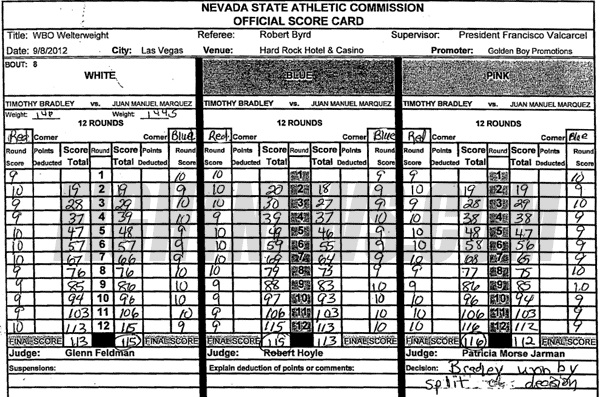 NEVADA STATE ATHLETIC COMMISSION
OFFICIAL SCORE CARD
Title: WBO Welterweight Referee: Robert Byrd Supervisor: President Francisco Valcarcel
Date: 9/8/2012 City: Las Vegas Venue: Hard Rock Hotel & Casino Promoter: Golden Boy Promotions
BOUT: 8
WHITE BLUE PINK
TIMOTHY BRADLEY vs. JUAN MANUEL MARQUEZ TIMOTHY BRADLEY vs. JUAN MANUEL MARQUEZ TIMOTHY BRADLEY vs. JUAN MANUEL MARQUEZ
Weight: Weight:
12 ROUNDS 12 ROUNDS 12 ROUNDS
Red Corner Corner Blue Red Corner Corner Blue Red Corner Corner Blue
Round Score Points Deducted Score Total Round Score Total Points Deducted Round Score Round Score Points Deducted Score Total Round Score Total Points Deducted Round Score Round Score Points Deducted Score Total Round Score Total Points Deducted Round Score
9 1 10 10 1 9 9 1 10
10 19 2 19 9 10 20 2 18 9 10 19 2 19 9
9 28 3 29 10 10 30 3 27 9 9 28 3 29 10
9 37 4 39 10 9 39 4 37 10 10 38 4 38 9
10 47 5 48 9 10 49 5 46 9 10 48 5 47 9
10 57 6 57 9 10 59 6 55 9 10 58 6 56 9
10 67 7 66 9 10 69 7 64 9 10 68 7 65 9
9 76 8 76 10 10 79 8 73 9 9 77 8 75 10
9 85 9 86 10 9 88 9 83 10 9 86 9 85 10
9 94 10 96 10 9 97 10 93 10 10 96 10 94 9
9 103 11 106 10 9 106 11 103 10 10 106 11 103 9
10 113 12 115 9 9 115 12 113 10 10 116 12 112 9
FINAL SCORE 113 115 FINAL SCORE FINAL SCORE 115 113 FINAL SCORE FINAL SCORE 116 112 FINAL SCORE
Judge: Glenn Feldman Judge: Robert Hoyle Judge: Patricia Morse Jarman
Suspensions: Explain deduction of points or comments: Decision: Bradley won by
split decision